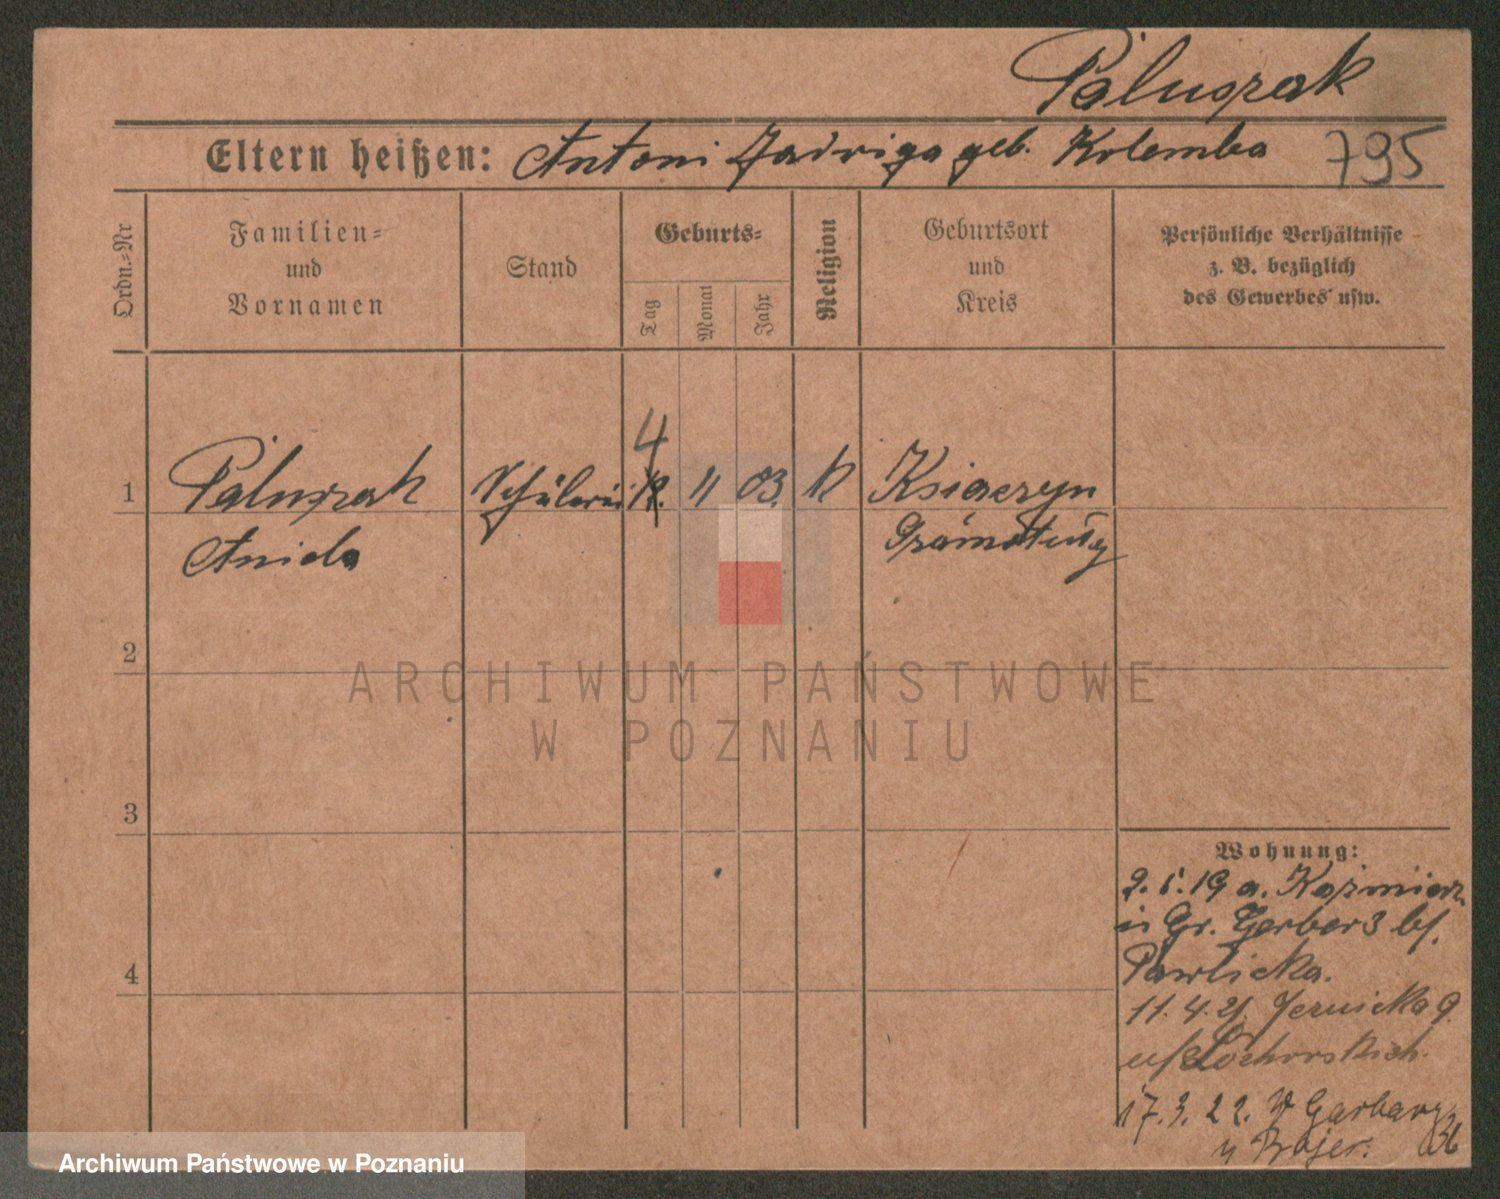 Paluszak
Eltern heißen: Antoni Jadwiga geb. Kolemba 795
Ordn.-Nr
Familien-
und
Vornamen
Stand
Geburts-
Tag
Monat
Jahr
Religion
Geburtsort
und
Kreis
Persönliche Verhältnisse
z. B. bezüglich
des Gewerbes usw.
4
1 Paluszak Schülerin 11 03. K Ksiaczyn
Aniela
2
3
4
Wohnung:
2. 5. 19 a. Kaźmierz
in Gr. Gerber 3 bf.
Pawlicka.
11. 4. 21. Jesuicka 9.
17. 3. 22. W Garbary
u Brajer. 36
ARCHIWUM PAŃSTWOWE
W POZNANIU
Archiwum Państwowe w Poznaniu